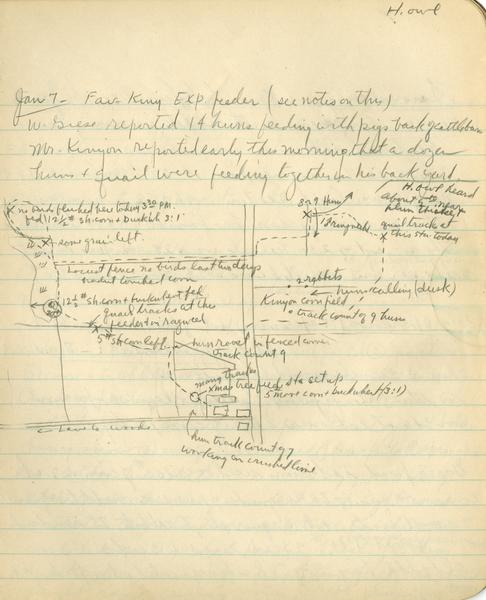 H. owl
Jan 7 - Favr King Exp feeder (see notes on this)
W. Giese reported 14 huns feeding with pigs back of cattle barn
Mr. Kinyon reported early this morning that a dozen
huns & quail were feeding together in his back yard
H. owl heard
about 5
plum thicket
no birds flushed here today 3:30 PM.
fed 12½ # sh. corn + buckwh 3:1
8 or 9 Huns
1 Ringneck
quail track at
this sta. today
some grain left
Locust fence no birds last two days
hadn't touched corn
2 rabbits
huns calling (dusk)
12½ # sh corn + buckwheat fed
quail tracks at this
feeder + in ragweed
Kinyon corn field
track count of 9 huns
5 # sh corn left
hun roost in fenced corner
track count 9
many tracks
Xmas tree feed sta set up
5 # more corn + buckwheat (3:1)
Lane to woods
hun track count of 7
working on crushed lime